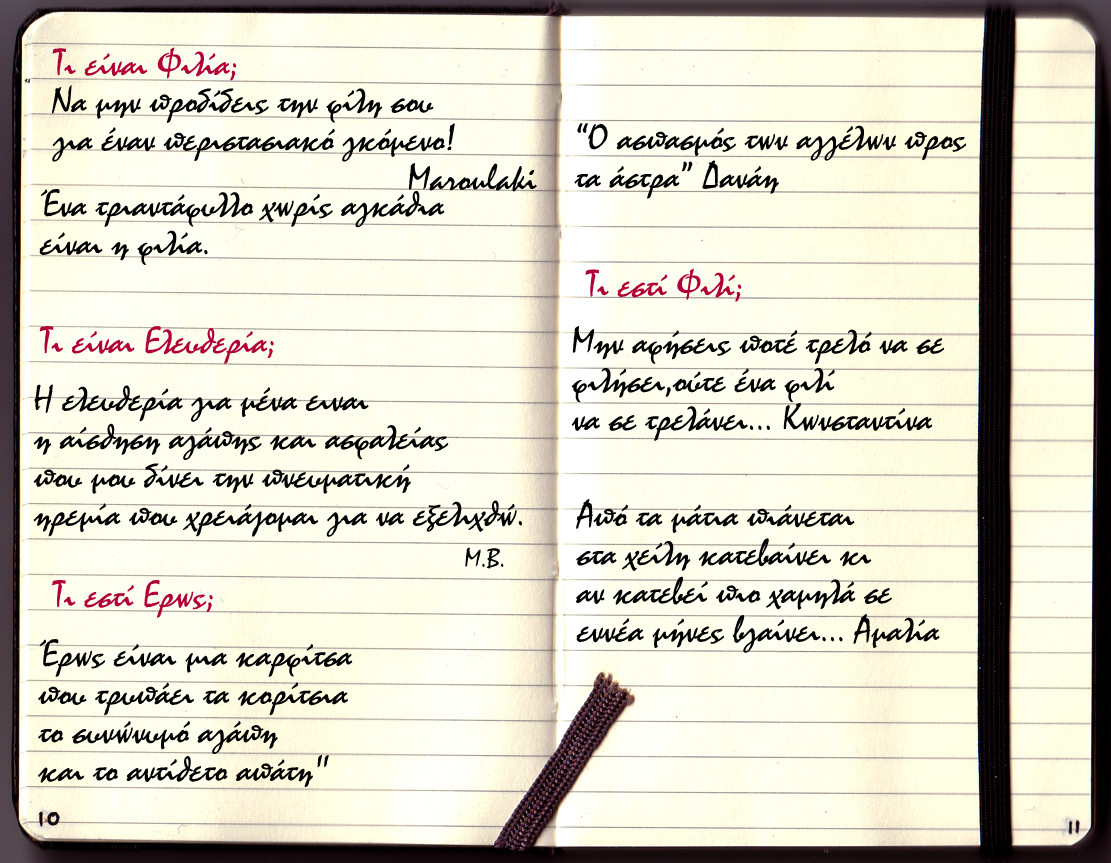 Τι είναι Φιλία;
Να μην προδίδεις την φίλη σου
για έναν περιστασιακό γκόμενο!
Maroulaki
Ένα τριαντάφυλλο χωρίς αγκάθια
είναι η φιλία.
Τι είναι Ελευθερία;
Η ελευθερία για μένα ειναι
η αίσθηση αγάπης και ασφαλείας
που μου δίνει την πνευματική
ηρεμία που χρειάζομαι για να εξελιχθώ.
M.B.
Τι εστί Ερως;
Έρως είναι μια καρφίτσα
που τρυπάει τα κορίτσια
το συνώνυμό αγάπη
και το αντίθετο απάτη"
10
"Ο ασπασμός των αγγέλων προς
τα άστρα" Δανάη
Τι εστί Φιλί;
Μην αφήσεις ποτέ τρελό να σε
φιλήσει,ούτε ένα φιλί
να σε τρελάνει... Κωνσταντίνα
Από τα μάτια πιάνεται
στα χείλη κατεβαίνει κι
αν κατεβεί πιο χαμηλά σε
εννέα μήνες βγαίνει... Αμαλία
11